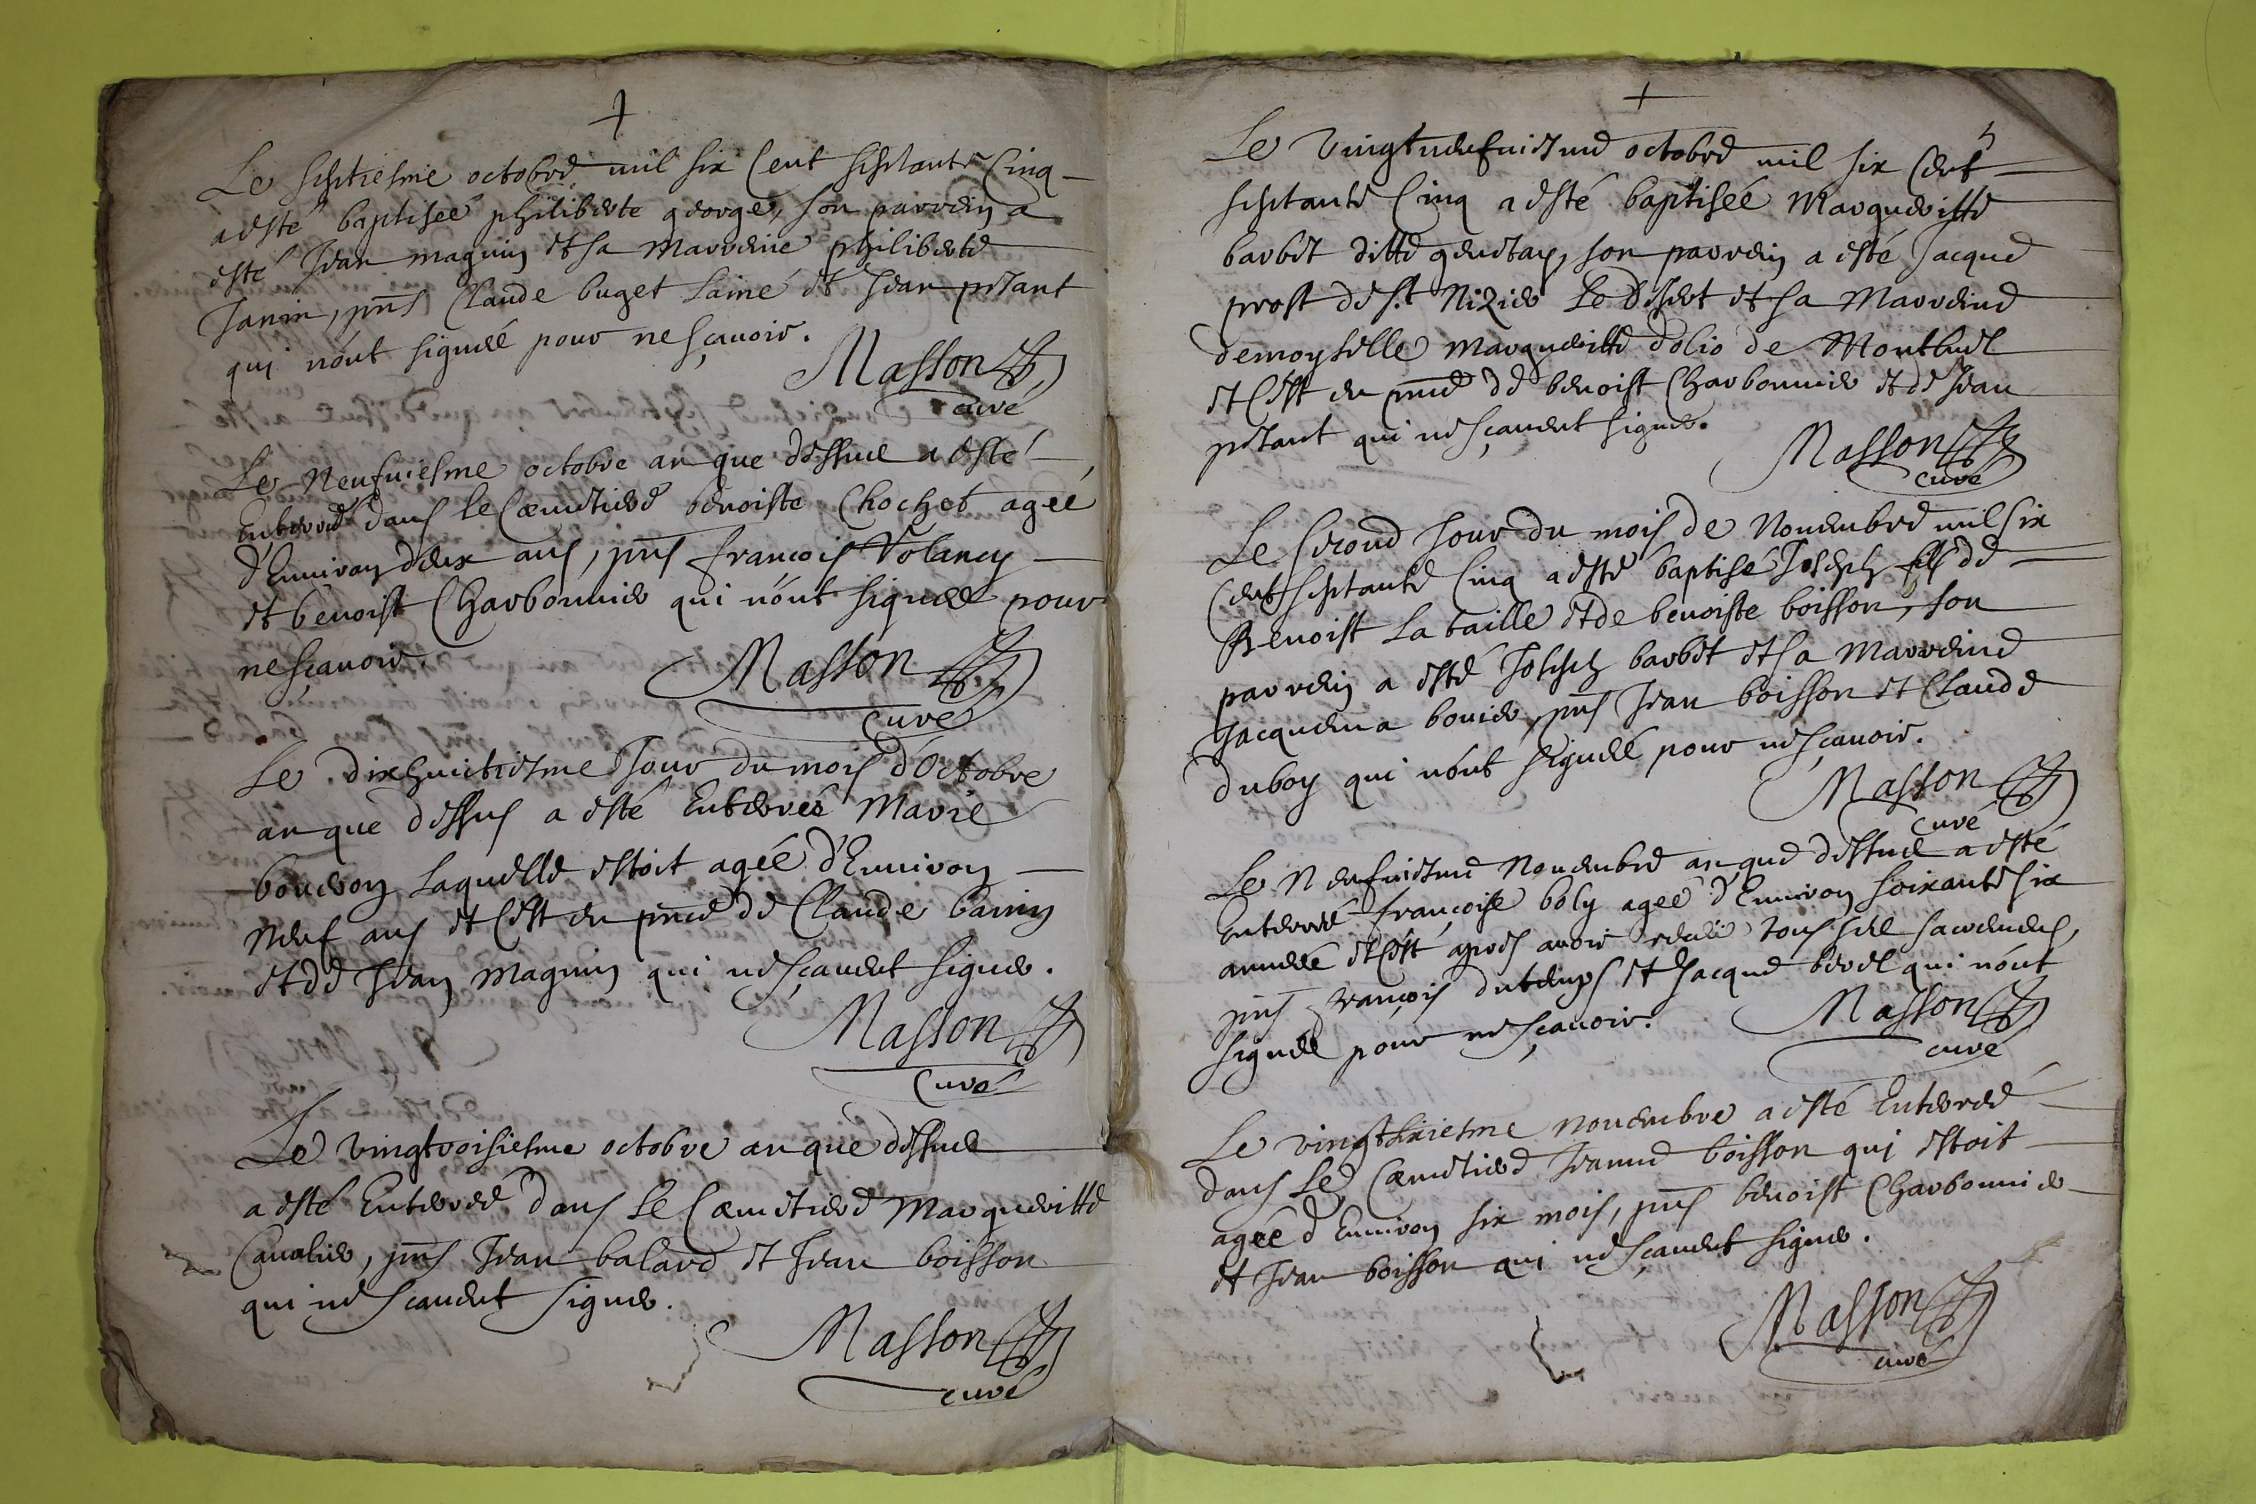 Le septiesme octobre mil six cent septante cinq
a esté baptisée philiberte george, son parrein a
esté Jean magnin et sa Marreine philiberte
Janin, pnts Claude buget Lainé et Jean pitant
qui nónt signéé pour ne sçavoir.
Masson
curé
Le Neufuiesme octobre an que dessue a esté
Enterré dans le Cœmetiere benoiste Chochet agéé
d'Enuiron deux ans, pnts francois Volancy
et benoist Charbonnier qui nónt signéé pour
ne sçauoir.
Masson
curé
Le dixhuictiesme Jour du mois d'Octobre
an que dessus a esté Enterréé Marie
bouuron Laquelle estoit agéé d'Enuiron
neuf ans et cest en pnce de Claude bainin
et de Jean magnin qui ne sçauent signer.
Masson
Curé
Le vingtroisiesme octobre an que dessue
a esté Enterréé dans Le Cœmetiere Marqueritte
Caualier, pnts Jean balard et Jean boisson
qui ne scauent signer.
Masson
curé
Le Vingtneufuiesme octobre mil six Cent
septante Cinq a esté baptiséé Marqueritte
barbet ditte genetay, son parrein a esté Jacque
prost de st Nizier Le Desert et sa Marreine
demoyselle Marqueritte dolio de Montluel
et Cest en pnce de benoist Charbonnier et de Jean
pitant qui ne sçauent signer.
Masson
curé
Le second Jour du mois de Nouembre mil six
Cent septante Cinq a esté baptisé Joseph fils de
Benoist La taille et de benoiste boisson, son
parrein a esté Joseph barbet et sa Marreine
Jacquema bouier, pnts Jean boisson et Claude
duboy qui nónt signéé pour ne sçauoir.
Masson
curé
Le Neufuiesme Nouembre an que dessue a esté
Enterréé françoise boly agéé d'Enuiron soixante six
annéé et cest apres auoir receu tous see sacremens,
pnts françois dutemps et Jacque berel qui nónt
signéé pour ne sçauoir.
Masson
curé
Le vingthuiesme nouembre a esté Enterréé
dans Le Cœmetiere Jeanne boisson qui estoit
agéé d'Enuiron six mois, pnts benoist Charbonnier
et Jean boisson qui ne sçauent signer.
Masson
curé